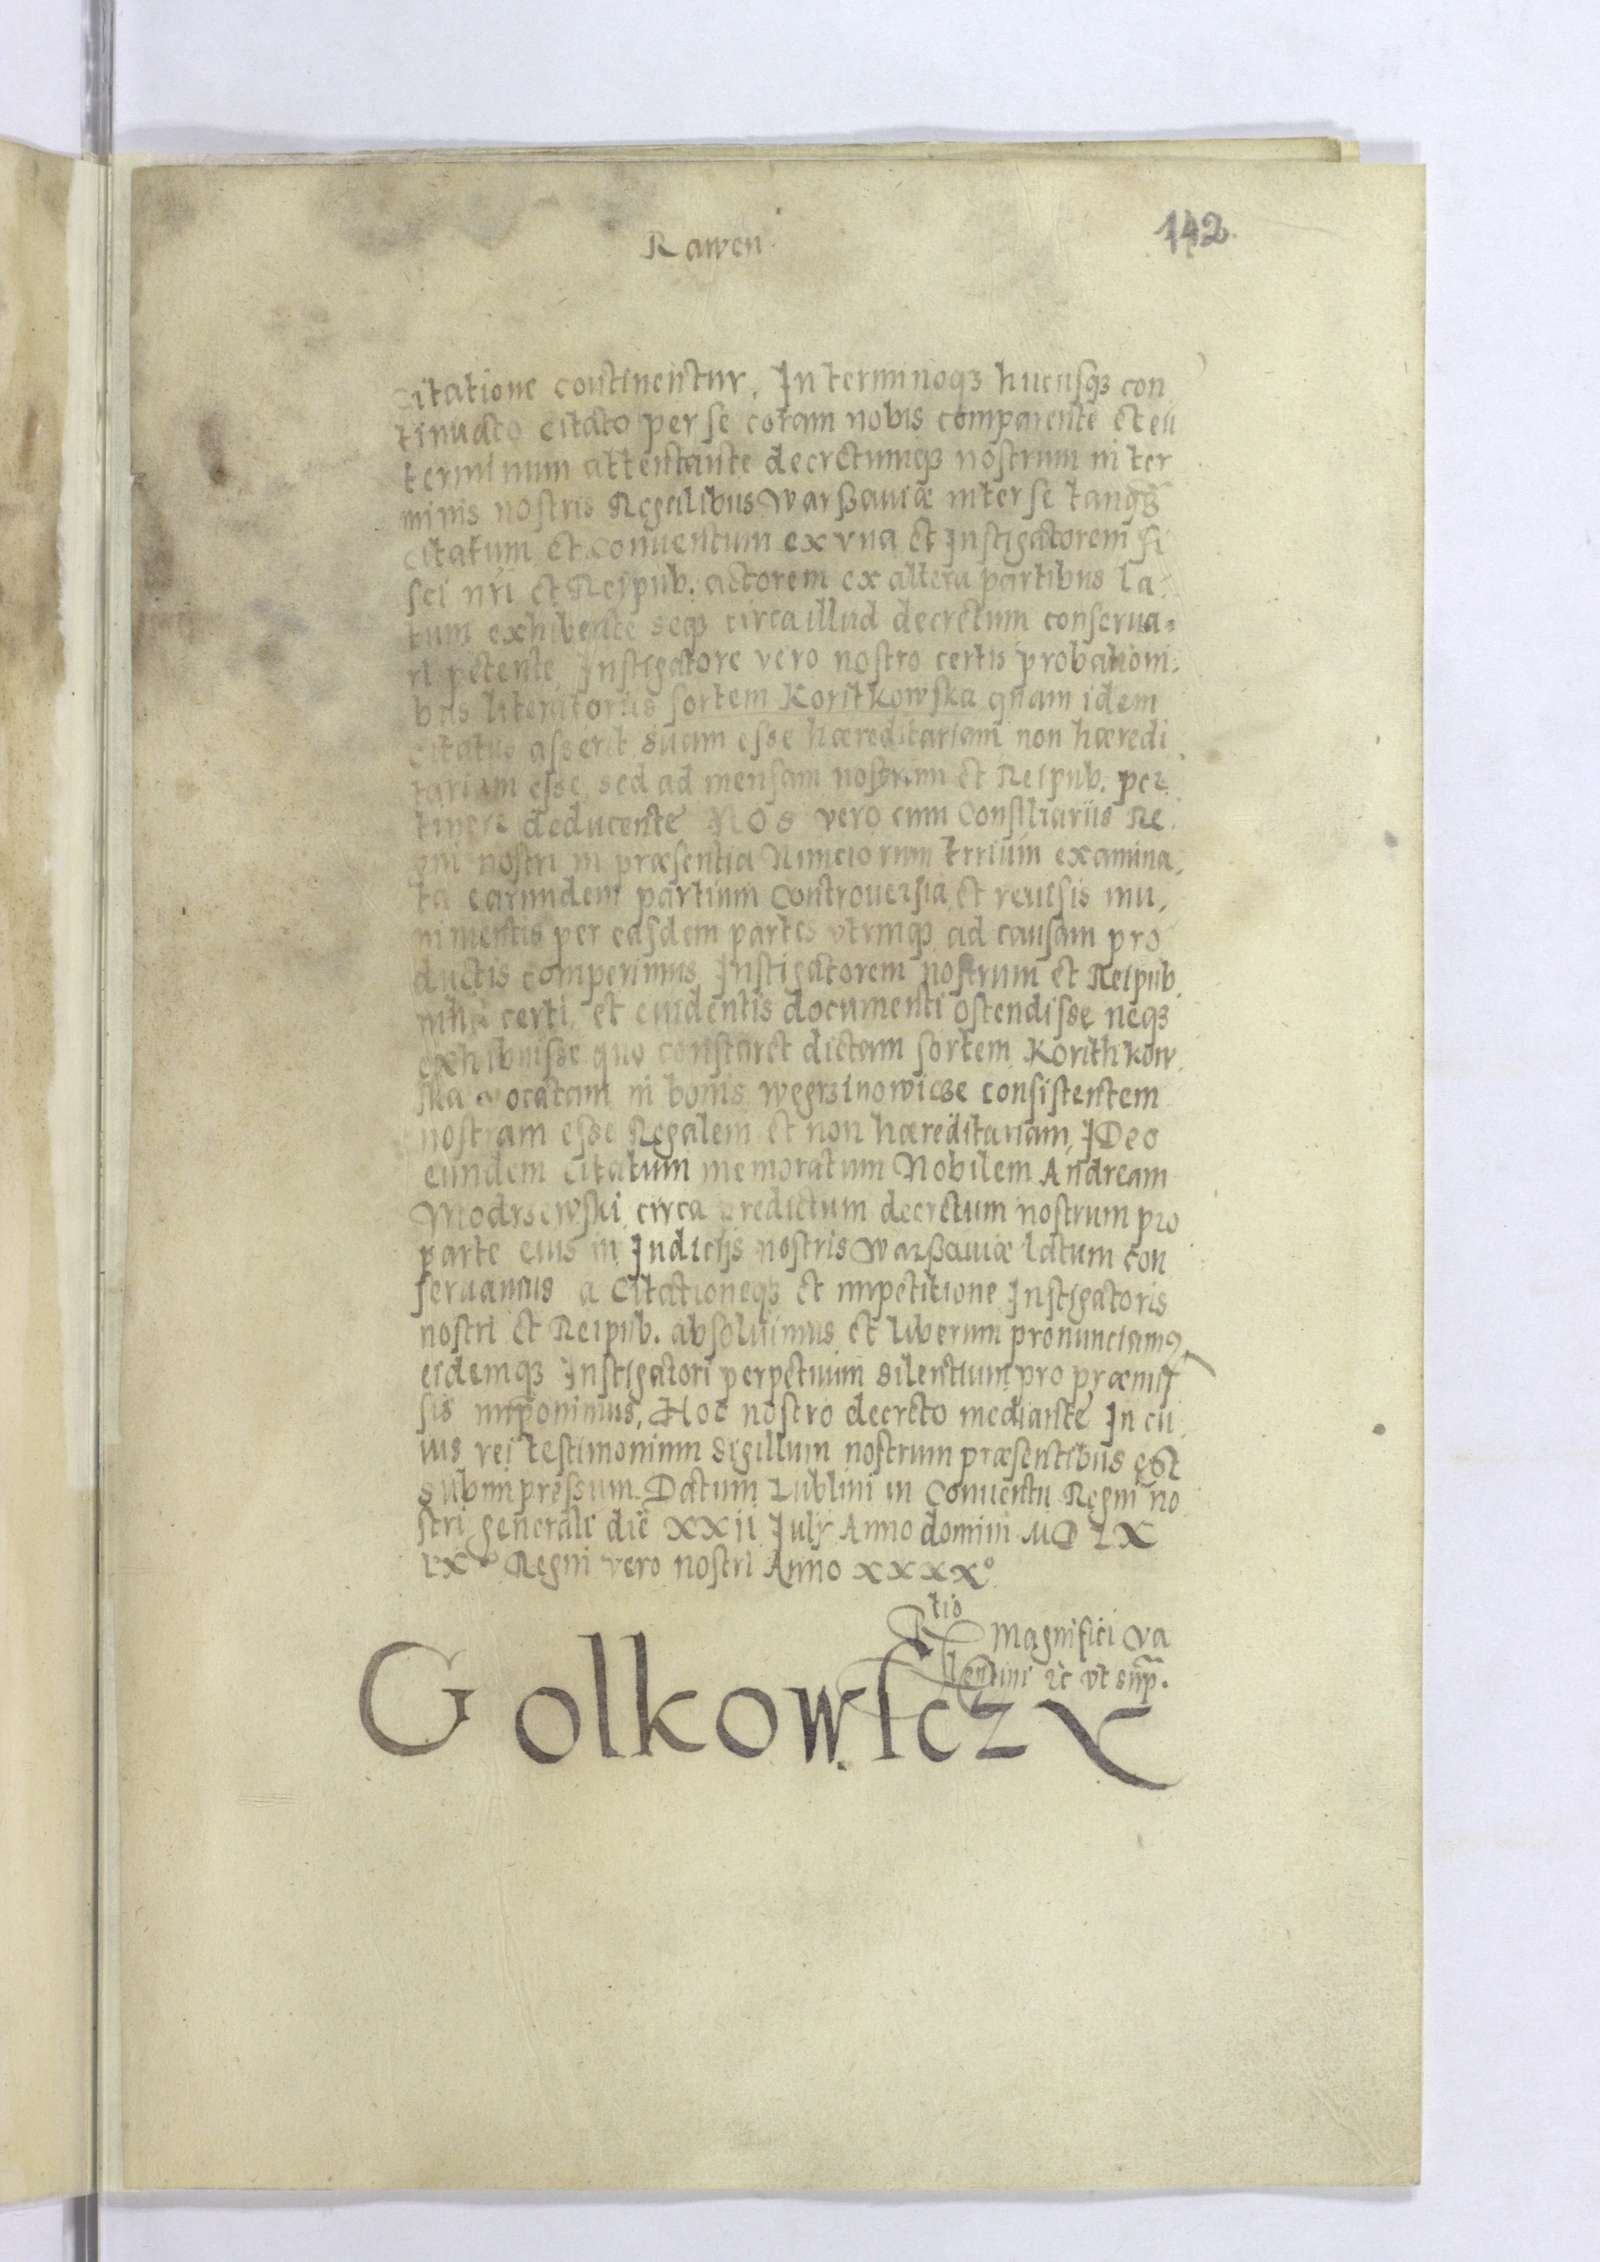 Rawen
142
citatione continentur. In terminoqꝫ hucusqꝫ con
tinuato citato per se coram nobis comparente et eū
terminum attentante decretumqꝫ nostrum in ter
minis nostris Regalibus Warßauiæ inter se tanqꝫ
citatum et Conuentum ex vna et Instigatorem fi
sci nrī et Reipub. actorem ex altera partibus la
tum exhibente seqꝫ circa illud decretum conserua=
ri petente, Instigatore vero nostro certis probationi=
bus literatoriis sortem Koritkowska quam idem
citatus asserit suam esse hæreditariam non hæredi
tariam esse, sed ad mensam nostram et Reipub. per
tinere deducente Nos vero cum Consiliariis Re
gni nostri in præsentia Nunciorum trrium examina,
ta earundem partium Controuersia, et reuisis mu,
nimentis per easdem partes vtrinqꝫ ad causam pro
ductis comperimus Instigatorem nostrum et Reipub
nihil certi, et euidentis documenti ostendisse neqꝫ
exhibuisse quo constaret dictam sortem Korithkow
ska vocatam in bonis Wegrzinowicze consistentem
nostram esse Regalem et non hæreditariam, IDeo
eundem citatum memoratum Nobilem Andream
Modrzewski circa predictum decretum nostrum pro
parte eius in Iudiciis nostris Warßauiæ latum con
seruamus a Citationeqꝫ et impetitione Instigatoris
nostri et Reipub. absoluimus et liberum pronunciamꝰ
eidemqꝫ Instigatori perpetuum silentium pro præmis
sis imponimus, Hoc nostro decreto mediante In cu
ius rei testimonium sigillum nostrum præsentibus est
subimpressum. Datum Lublini in Conuentu Regni no
stri generali die XXii July Anno domini MDLX
IX Regni vero nostri Anno XXXXº
Rtio Magnifici Va
lentini ꝛc vt sup̄.
Golkowſczy